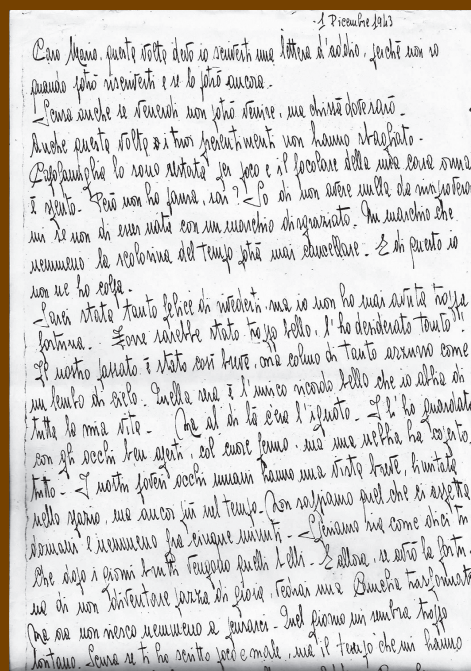 1 Dicembre 1943
Caro Mario, questa volta devo io scriverti una lettera d'addio, perchè non so
quando potrò riscriverti e se lo potrò ancora.
Scusa anche se Venerdì non potrò venire, ma chissà dove sarò.
Anche questa volta i tuoi presentimenti non hanno sbagliato.
Capofamiglia lo sono restata per poco e il focolare della mia casa ormai
è spento. Però non ho paura, sai? So di non avere nulla da rimprovera
mi se non di esser nata con un marchio disgraziato. Un marchio che
nemmeno la scolorina del tempo potrà mai cancellare. E di questo io
non ne ho colpa.
Sarei stata tanto felice di rivederti, ma io non ho mai avuta troppa
fortuna. Forse sarebbe stato troppo bello, l'ho desiderato tanto!
Il nostro passato è stato così breve, ma colmo di tanto azzurro come
un lembo di cielo. Quella sera è l'unico ricordo bello che io abbia di
tutta la mia vita. Ma al di là c'era l'ignoto. E l'ho guardato
con gli occhi ben aperti, col cuore fermo, ma una nebbia ha coperto
tutto. I nostri poveri occhi umani hanno una vista breve, limitata
nello spazio, ma ancor più nel tempo. Non sappiamo quel che ci aspetta
domani e nemmeno fra cinque minuti. Speriamo sia come dici tu
che dopo i giorni brutti vengano quelli belli. E allora, se avrò la fortu
na di non diventare pazza di gioia, vedrai una trasformata
Ma ora non riesco nemmeno a pensarci. Quel giorno mi sembra troppo
lontano. Scusa se ti ho scritto poco e male, ma il tempo che mi hanno